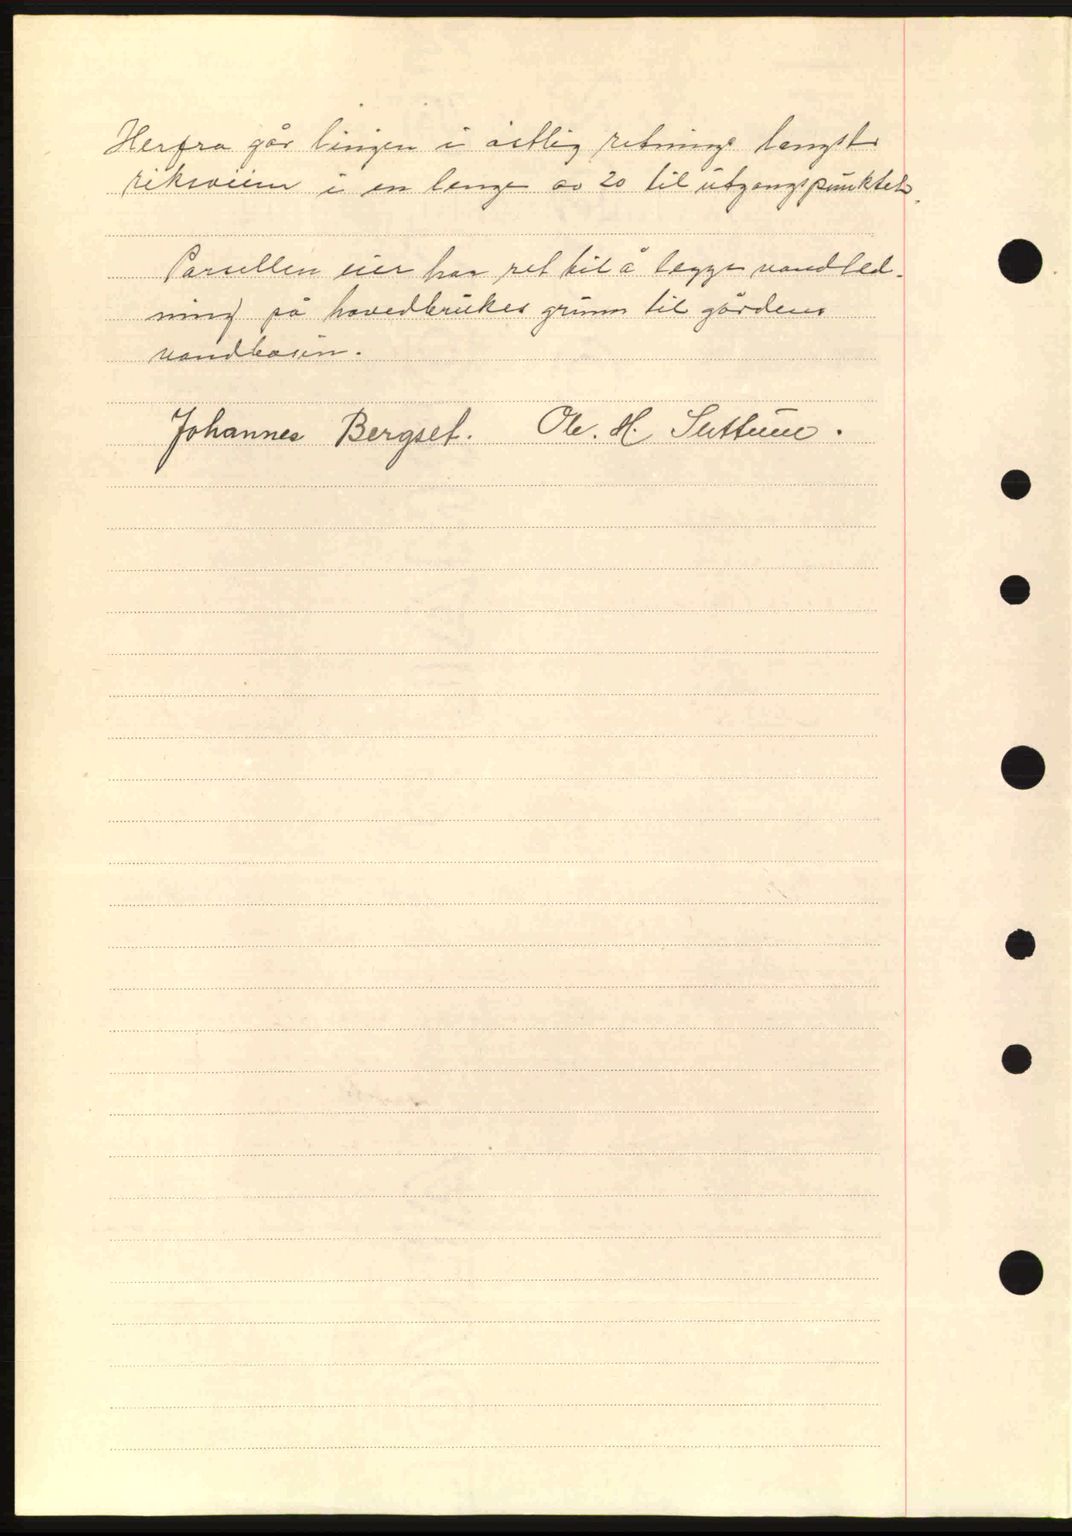 Herfra går linjen i østlig retning langs
riksveien i en lenge av 20 til utgangspunktet.
Parsellen eier har ret til å legge vandled-
ning på hovedbrukes grunn til gårdens
vandbasin.
Johannes Bergset. Ole. H.